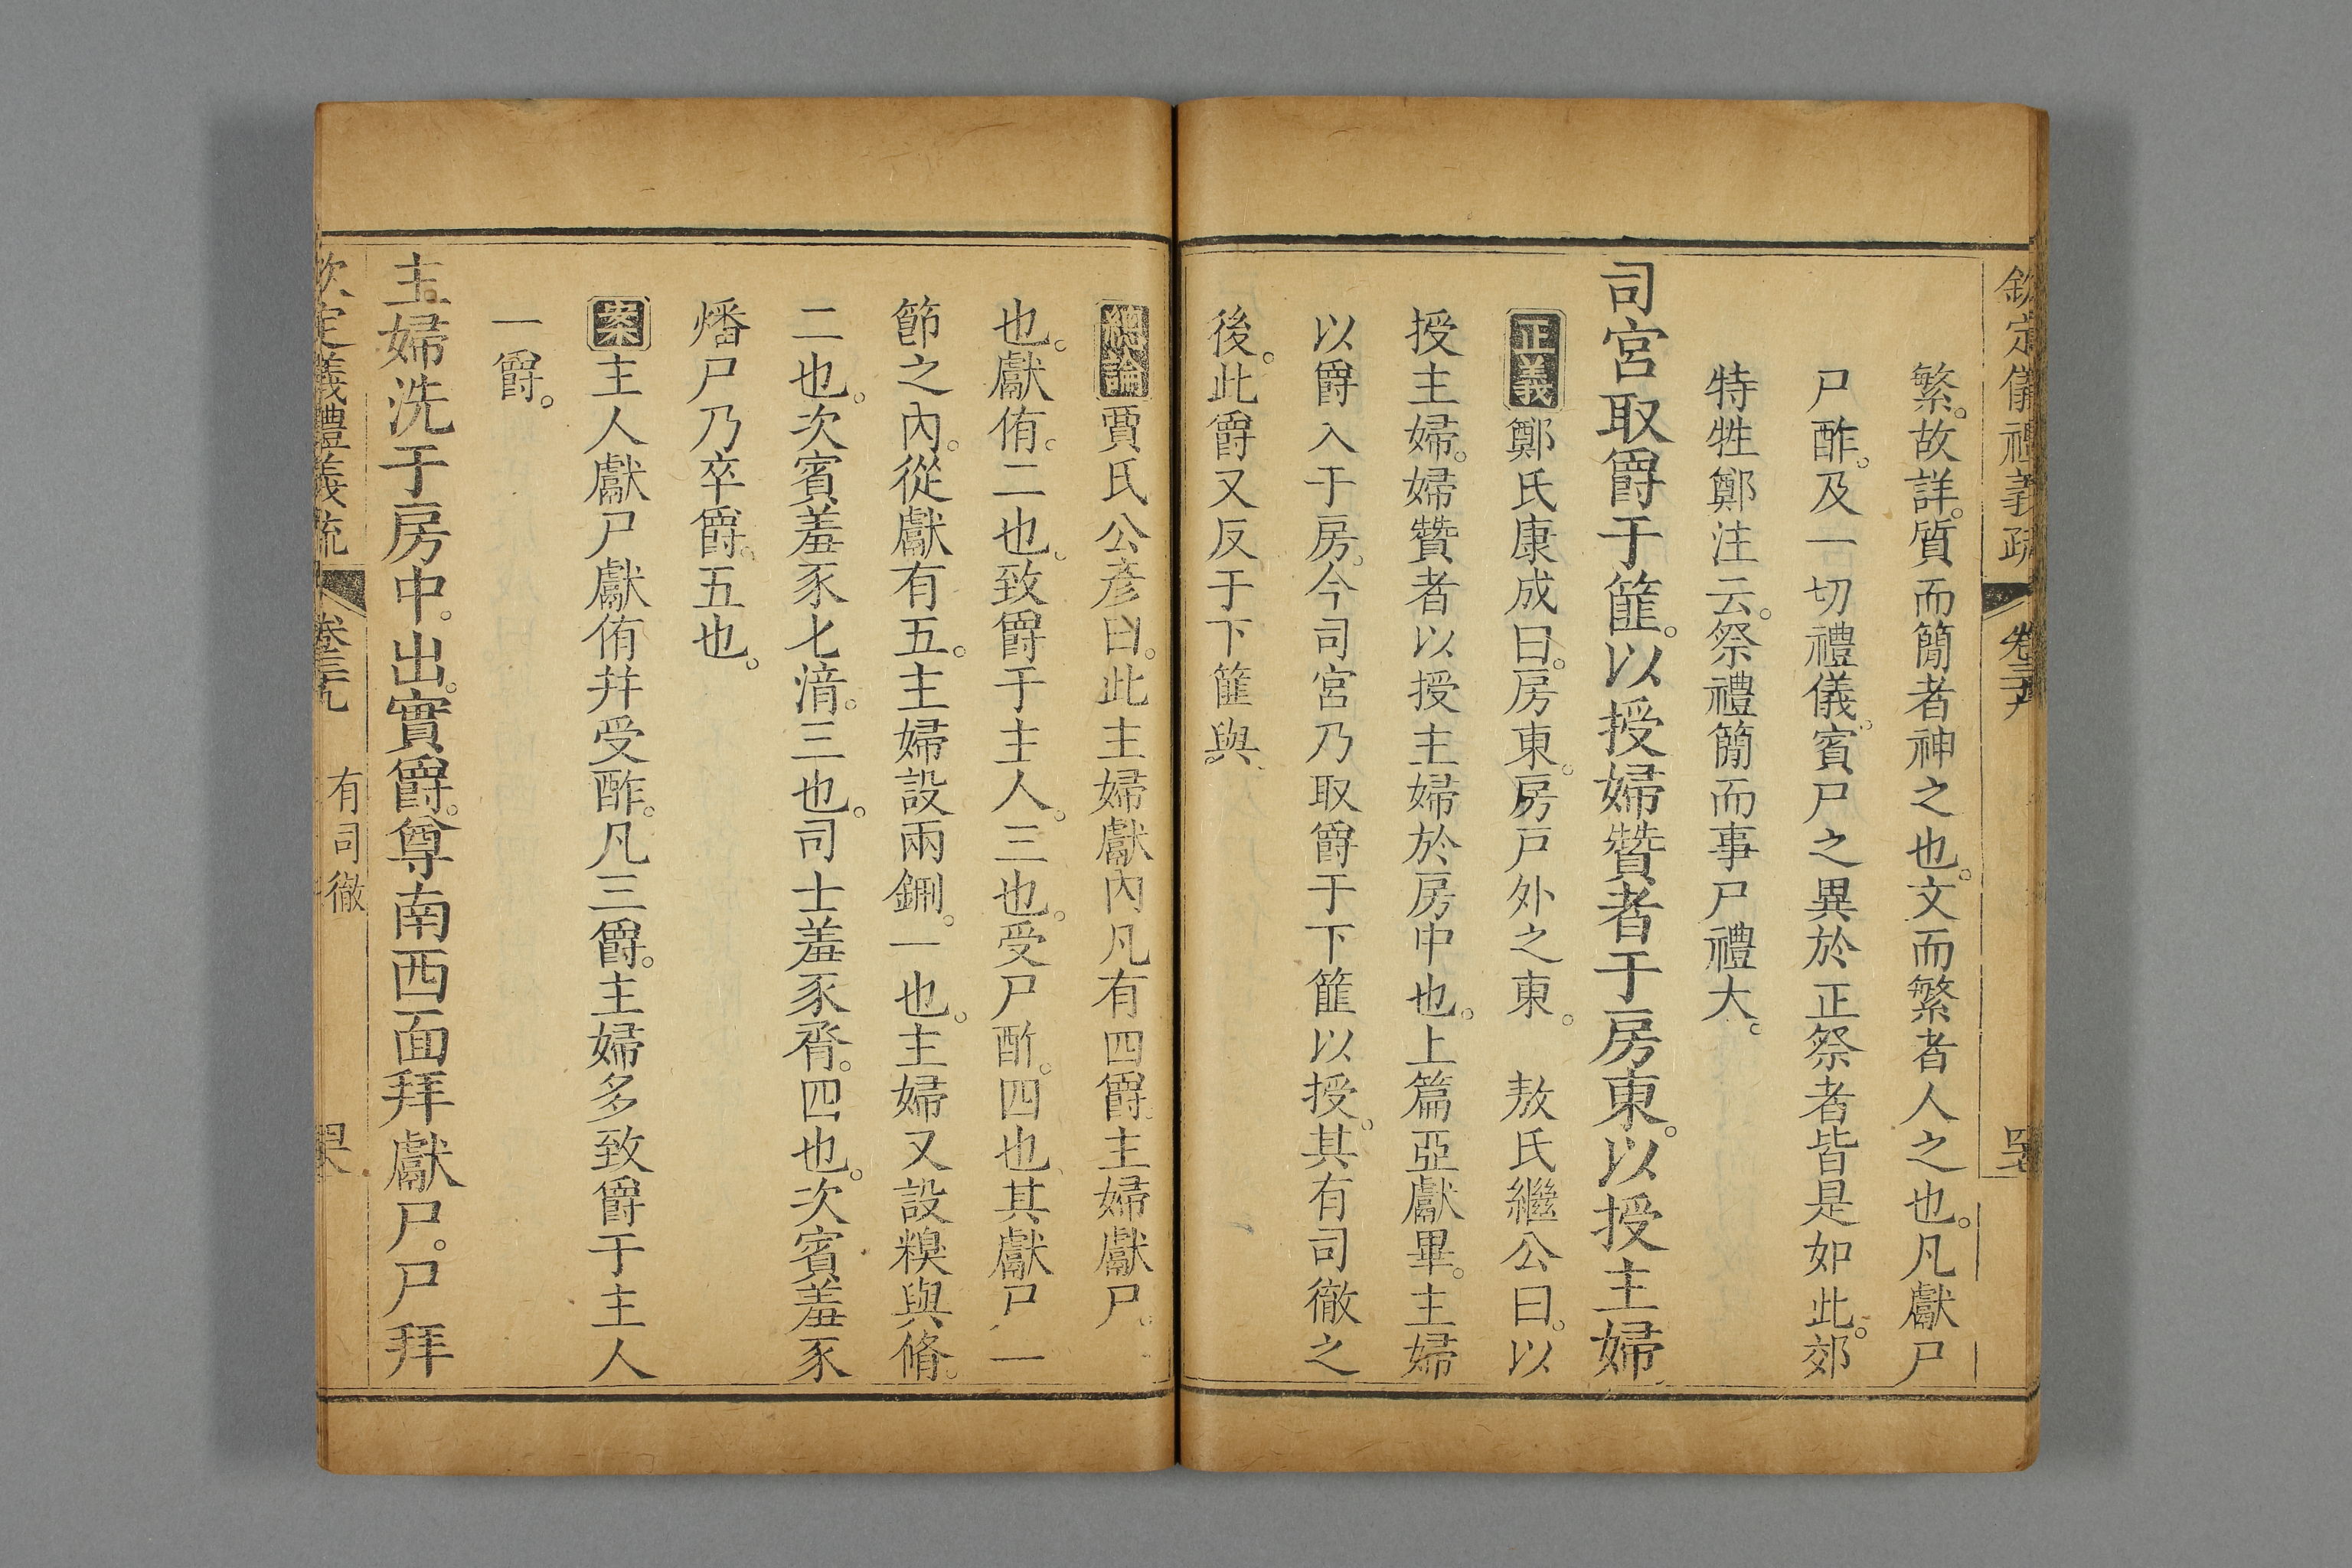 欽定儀禮義疏 卷三十九
繁。故詳。質而簡者神之也。文而繁者人之也。凡獻尸
尸酢。及一切禮儀。賓尸之異於正祭者皆是如此。郊
特牲鄭注云。祭禮簡而事尸禮大。
司宮取爵于篚。以授婦贊者于房東。以授主婦
正義 鄭氏康成曰。房東。房戶外之東。 敖氏繼公曰。以
授主婦。婦贊者以授主婦於房中也。上篇亞獻畢。主婦
以爵入于房。今司宮乃取爵于下篚以授。其有司徹之
後。此爵又反于下篚與
總論 賈氏公彥曰。此主婦獻內凡有四爵。主婦獻尸。一
也。獻侑。二也。致爵于主人。三也。受尸酢。四也。其獻尸一
節之內。從獻有五。主婦設兩鉶。一也。主婦又設糗與脩。
二也。次賓羞豕匕湆。三也。司士羞豕脀。四也。次賓羞豕
燔尸乃卒爵。五也。
案 主人獻尸獻侑并受酢。凡三爵。主婦多致爵于主人
一爵。
主婦洗于房中。出。實爵。尊南西面拜獻尸。尸拜
欽定儀禮義疏 卷三十九 有司徹